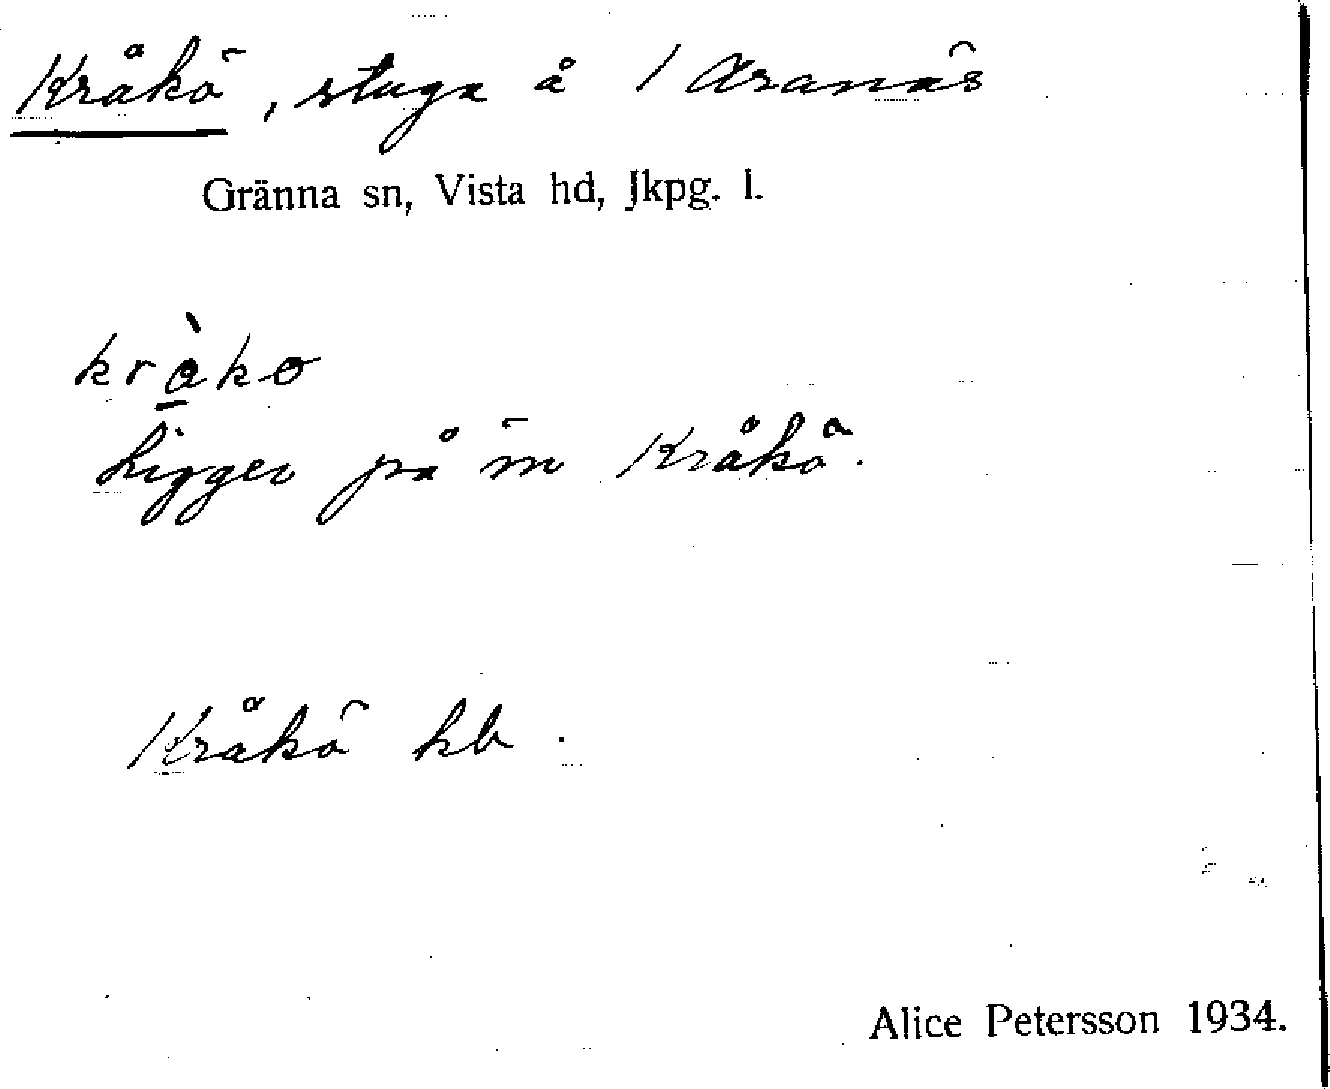 Kråkö, stuga å 1 Aranäs
Gränna sn, Vista hd, Jkpg. l.
kràko
Ligger på ön Kråkö.
Kråkö hb.
Alice Petersson 1934.